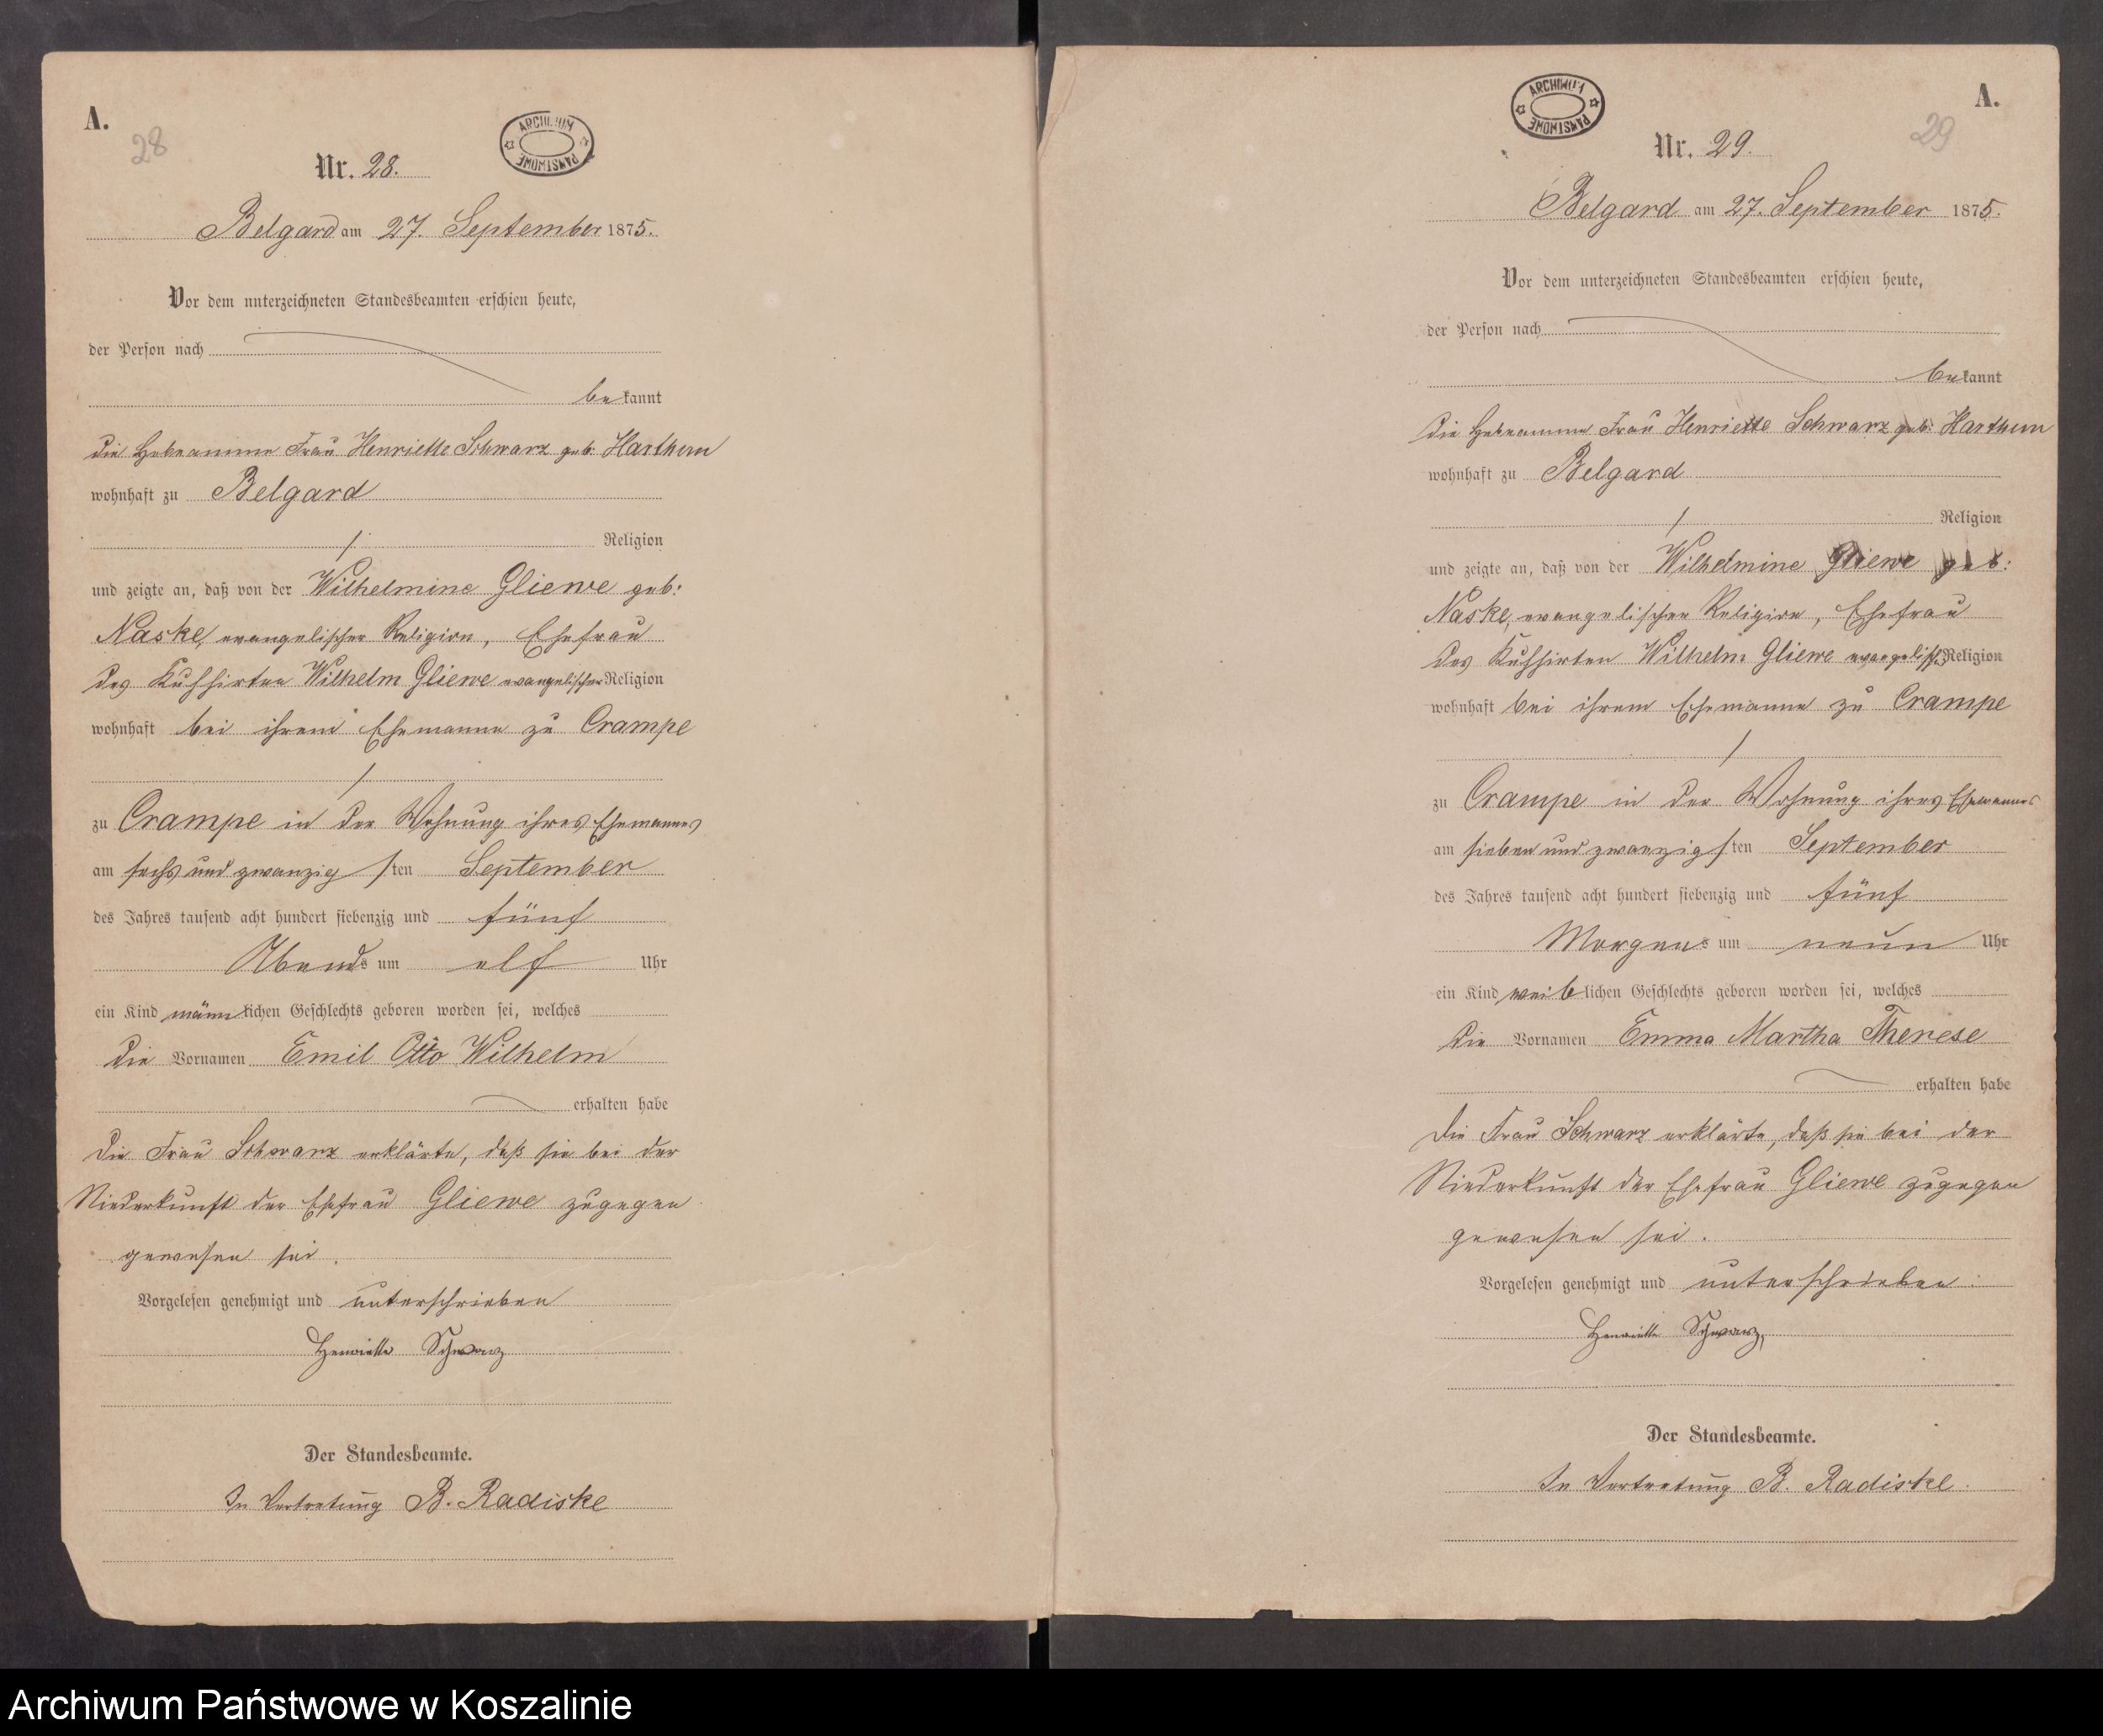 A.
28
ARCHIWUM PAŃSTWOWE
Nr. 28.
Belgard am 27. September 1875.
Vor dem unterzeichneten Standesbeamten erschien heute,
der Person nach
bekannt
die Hebeamme Frau Henriette Schwarz geb. Harthun
wohnhaft zu Belgard
Religion
und zeigte an, daß von der Wilhelmine Gliewe geb:
Naske, evangelischer Religion, Ehefrau
des Kuhhirten Wilhelm Gliewe evangelischer Religion
wohnhaft bei ihrem Ehemanne zu Crampe
zu Crampe in der Wohnung ihres Ehemannes
am sechs und zwanzigsten September
des Jahres tausend acht hundert siebenzig und fünf
Abends um elf Uhr
ein Kind männlichen Geschlechts geboren worden sei, welches
die Vornamen Emil Otto Wilhelm
erhalten habe
Die Frau Schwarz erklärte, daß sie bei der
Niederkunft der Ehefrau Gliewe zugegen
gewesen sei.
Vorgelesen genehmigt und unterschrieben
Henriette Schwarz
Der Standesbeamte.
In Vertretung B. Radiske
ARCHIWUM PAŃSTWOWE
A.
29
Nr. 29.
Belgard am 27. September 1875.
Vor dem unterzeichneten Standesbeamten erschien heute,
der Person nach
bekannt
die Hebeamme Frau Henriette Schwarz geb: Harthun
wohnhaft zu Belgard
Religion
und zeigte an, daß von der Wilhelmine Gliewe geb:
Naske, evangelischer Religion, Ehefrau
des Kuhhirten Wilhelm Gliewe evangelisch. Religion
wohnhaft bei ihrem Ehemanne zu Crampe
zu Crampe in der Wohnung ihres Ehemannes
am sieben und zwanzigsten September
des Jahres tausend acht hundert siebenzig und fünf
Morgens um neun Uhr
ein Kind weiblichen Geschlechts geboren worden sei, welches
die Vornamen Emma Martha Therese
erhalten habe
Die Frau Schwarz erklärte, daß sie bei der
Niederkunft der Ehefrau Gliewe zugegen
gewesen sei.
Vorgelesen genehmigt und unterschrieben.
Henriette Schwarz,
Der Standesbeamte.
In Vertretung B. Radiske.
Archiwum Państwowe w Koszalinie